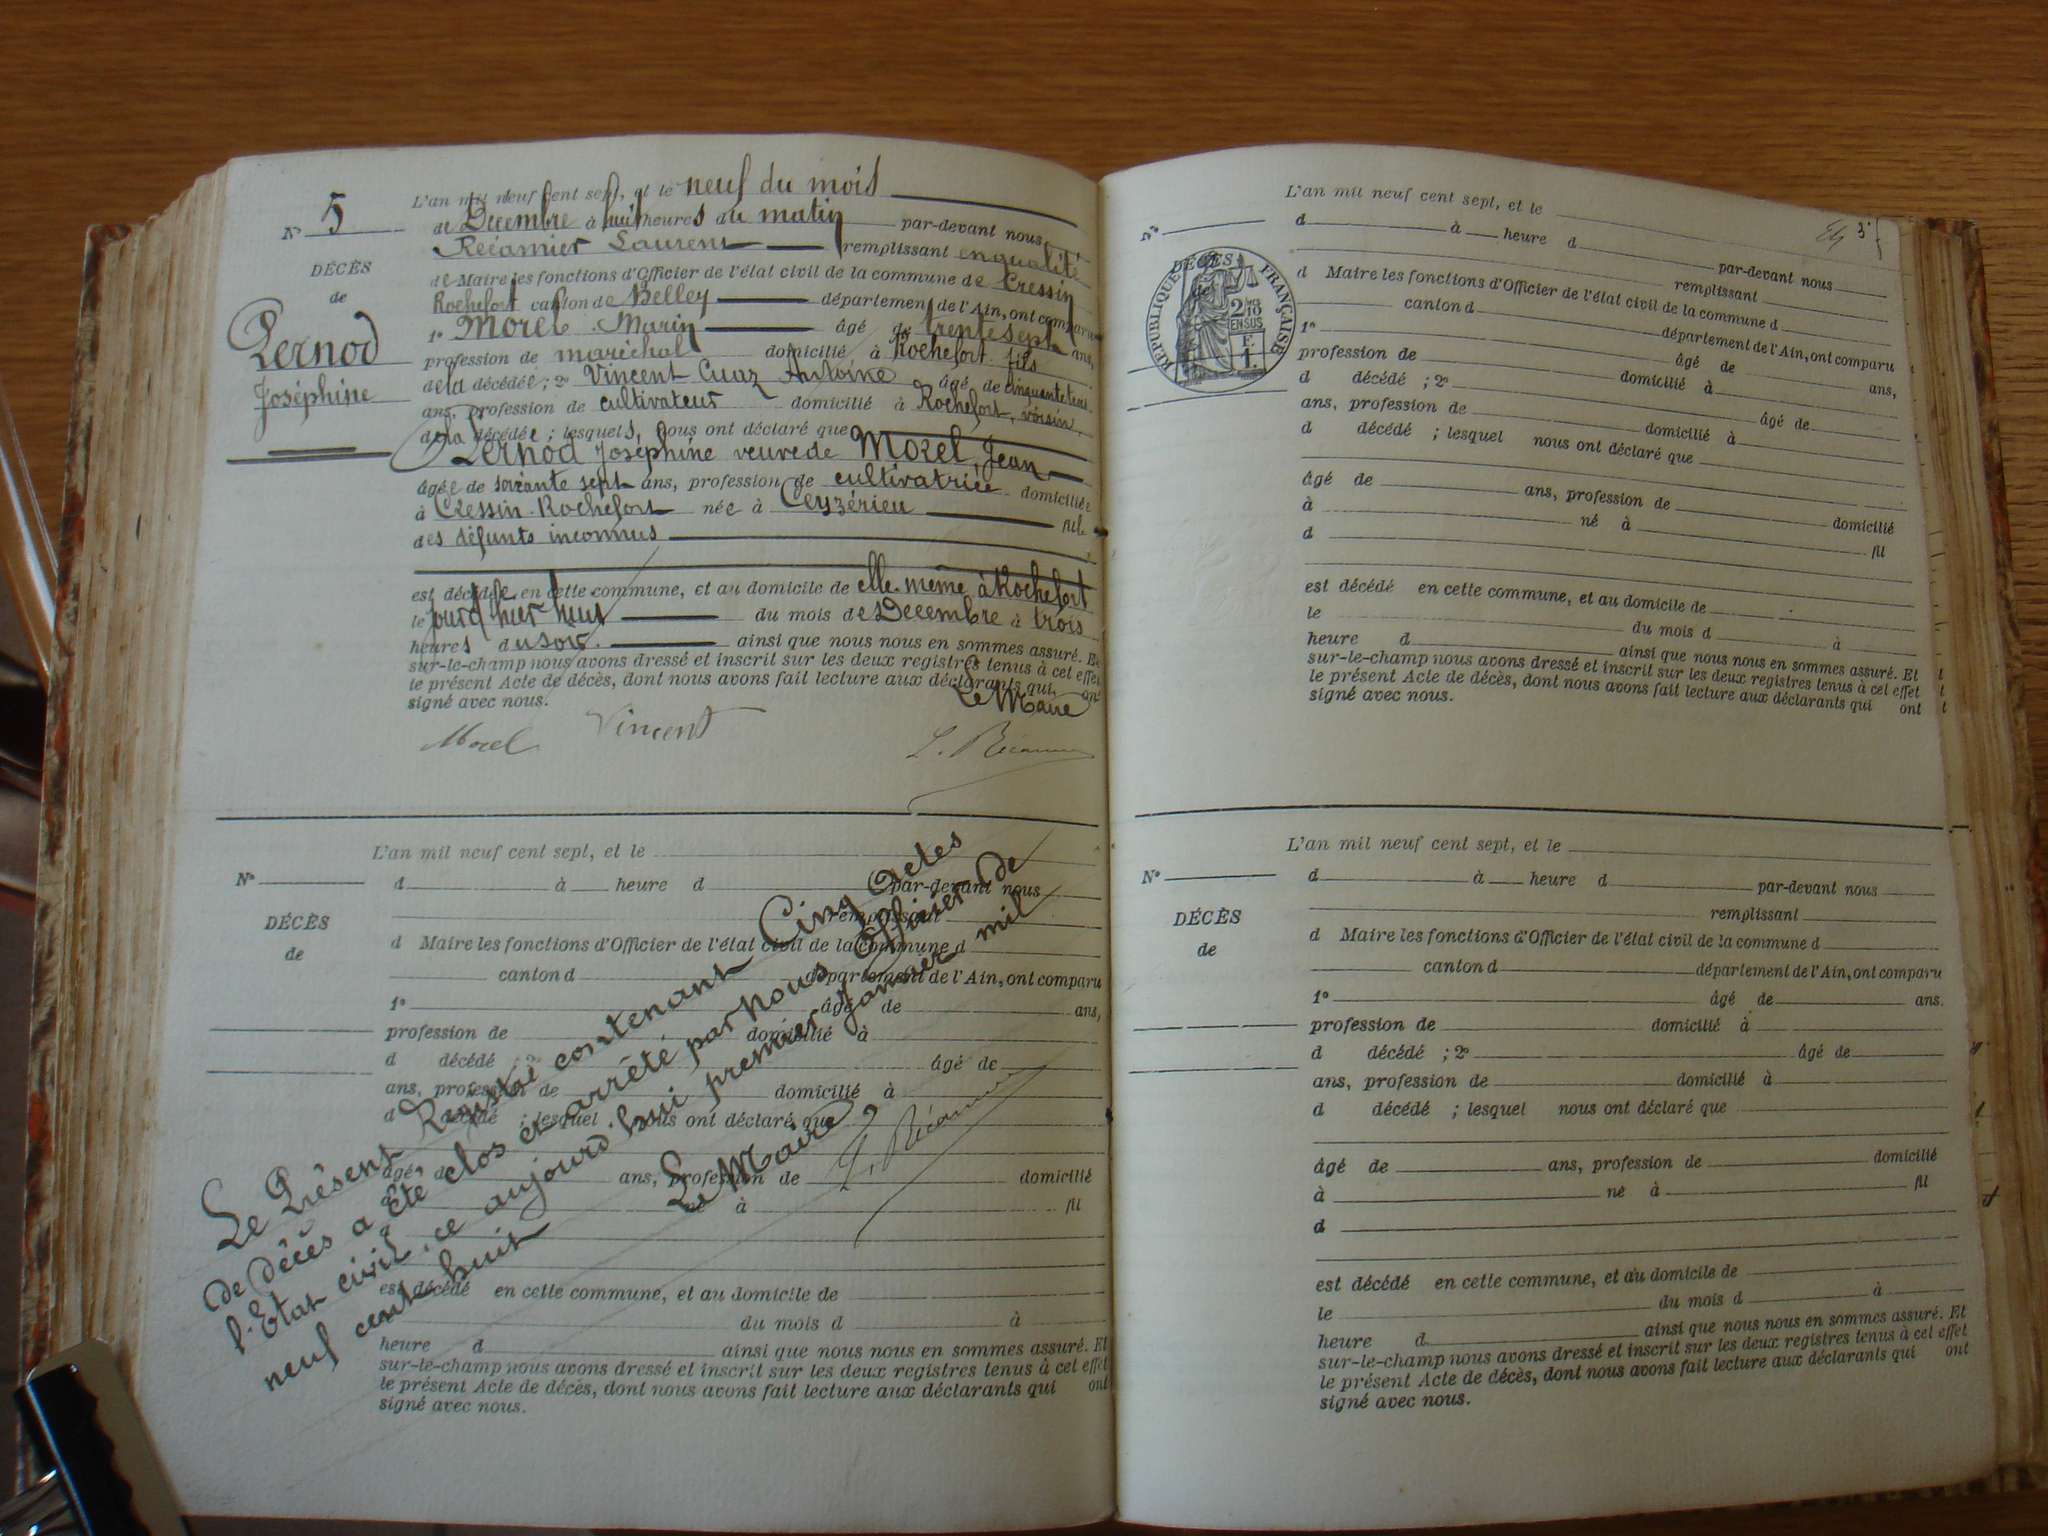 N° 5
DÉCÈS
de
Pernod
Joséphine
L'an mil neuf cent sept, et le neuf du mois
de Décembre à huit heures du matin par-devant nous
Récamier Laurent remplissant en qualité
de Maire les fonctions d'Officier de l'état civil de la commune de Cressin
Rochefort canton de Belley département de l'Ain, ont comparu
1° Morel Marin âgé de trente sept ans,
profession de maréchal domicilié à Rochefort fils
de la décédée ; 2° Vincent Cuaz Antoine âgé de cinquante trois
ans, profession de cultivateur domicilié à Rochefort, voisin,
de la décédée ; lesquels, nous ont déclaré que
Pernod Joséphine veuve de Morel, Jean
âgée de soixante sept ans, profession de cultivatrice domiciliée
à Cressin-Rochefort née à Ceyzérieu fille
des défunts inconnus
est décédée en cette commune, et au domicile de elle même à Rochefort
le jourd'hier huit du mois de Décembre à trois
heures du soir. ainsi que nous nous en sommes assuré. Et
sur-le-champ nous avons dressé et inscrit sur les deux registres tenus à cet effet
le présent Acte de décès, dont nous avons fait lecture aux déclarants qui ont
signé avec nous.
Le Maire
Morel Vincent L. Récamier
N°
DÉCÈS
de
L'an mil neuf cent sept, et le
d à heure d par-devant nous
remplissant
d Maire les fonctions d'Officier de l'état civil de la commune d
canton d département de l'Ain, ont comparu
1° âgé de ans,
profession de domicilié à
d décédé ; 2° âgé de
ans, profession de domicilié à
d décédé ; lesquel nous ont déclaré que
âgé de ans, profession de domicilié
à né à fil
d
est décédé en cette commune, et au domicile de
le du mois d à
heure d ainsi que nous nous en sommes assuré. Et
sur-le-champ nous avons dressé et inscrit sur les deux registres tenus à cet effet
le présent Acte de décès, dont nous avons fait lecture aux déclarants qui ont
signé avec nous.
Le Présent Registre contenant Cinq actes
de décès a été clos et arrêté par nous Officier de
l'Etat civil, ce aujourd'hui premier Janvier mil
neuf cent huit
Le Maire,
L. Récamier
3
N°
DÉCÈS
de
RÉPUBLIQUE FRANÇAISE
2/10
EN SUS
F.
1.
L'an mil neuf cent sept, et le
d à heure d
par-devant nous
remplissant
d Maire les fonctions d'Officier de l'état civil de la commune d
canton d département de l'Ain, ont comparu
1° âgé de ans,
profession de domicilié à
d décédé ; 2° âgé de
ans, profession de domicilié à
d décédé ; lesquel nous ont déclaré que
âgé de ans, profession de domicilié
à né à fil
d
est décédé en cette commune, et au domicile de
le du mois d à
heure d ainsi que nous nous en sommes assuré. Et
sur-le-champ nous avons dressé et inscrit sur les deux registres tenus à cet effet
le présent Acte de décès, dont nous avons fait lecture aux déclarants qui ont
signé avec nous.
N°
DÉCÈS
de
L'an mil neuf cent sept, et le
d à heure d par-devant nous
remplissant
d Maire les fonctions d'Officier de l'état civil de la commune d
canton d département de l'Ain, ont comparu
1° âgé de ans.
profession de domicilié à
d décédé ; 2° âgé de
ans, profession de domicilié à
d décédé ; lesquel nous ont déclaré que
âgé de ans, profession de domicilié
à né à fil
d
est décédé en cette commune, et au domicile de
le du mois d à
heure d ainsi que nous nous en sommes assuré. Et
sur-le-champ nous avons dressé et inscrit sur les deux registres tenus à cet effet
le présent Acte de décès, dont nous avons fait lecture aux déclarants qui ont
signé avec nous.